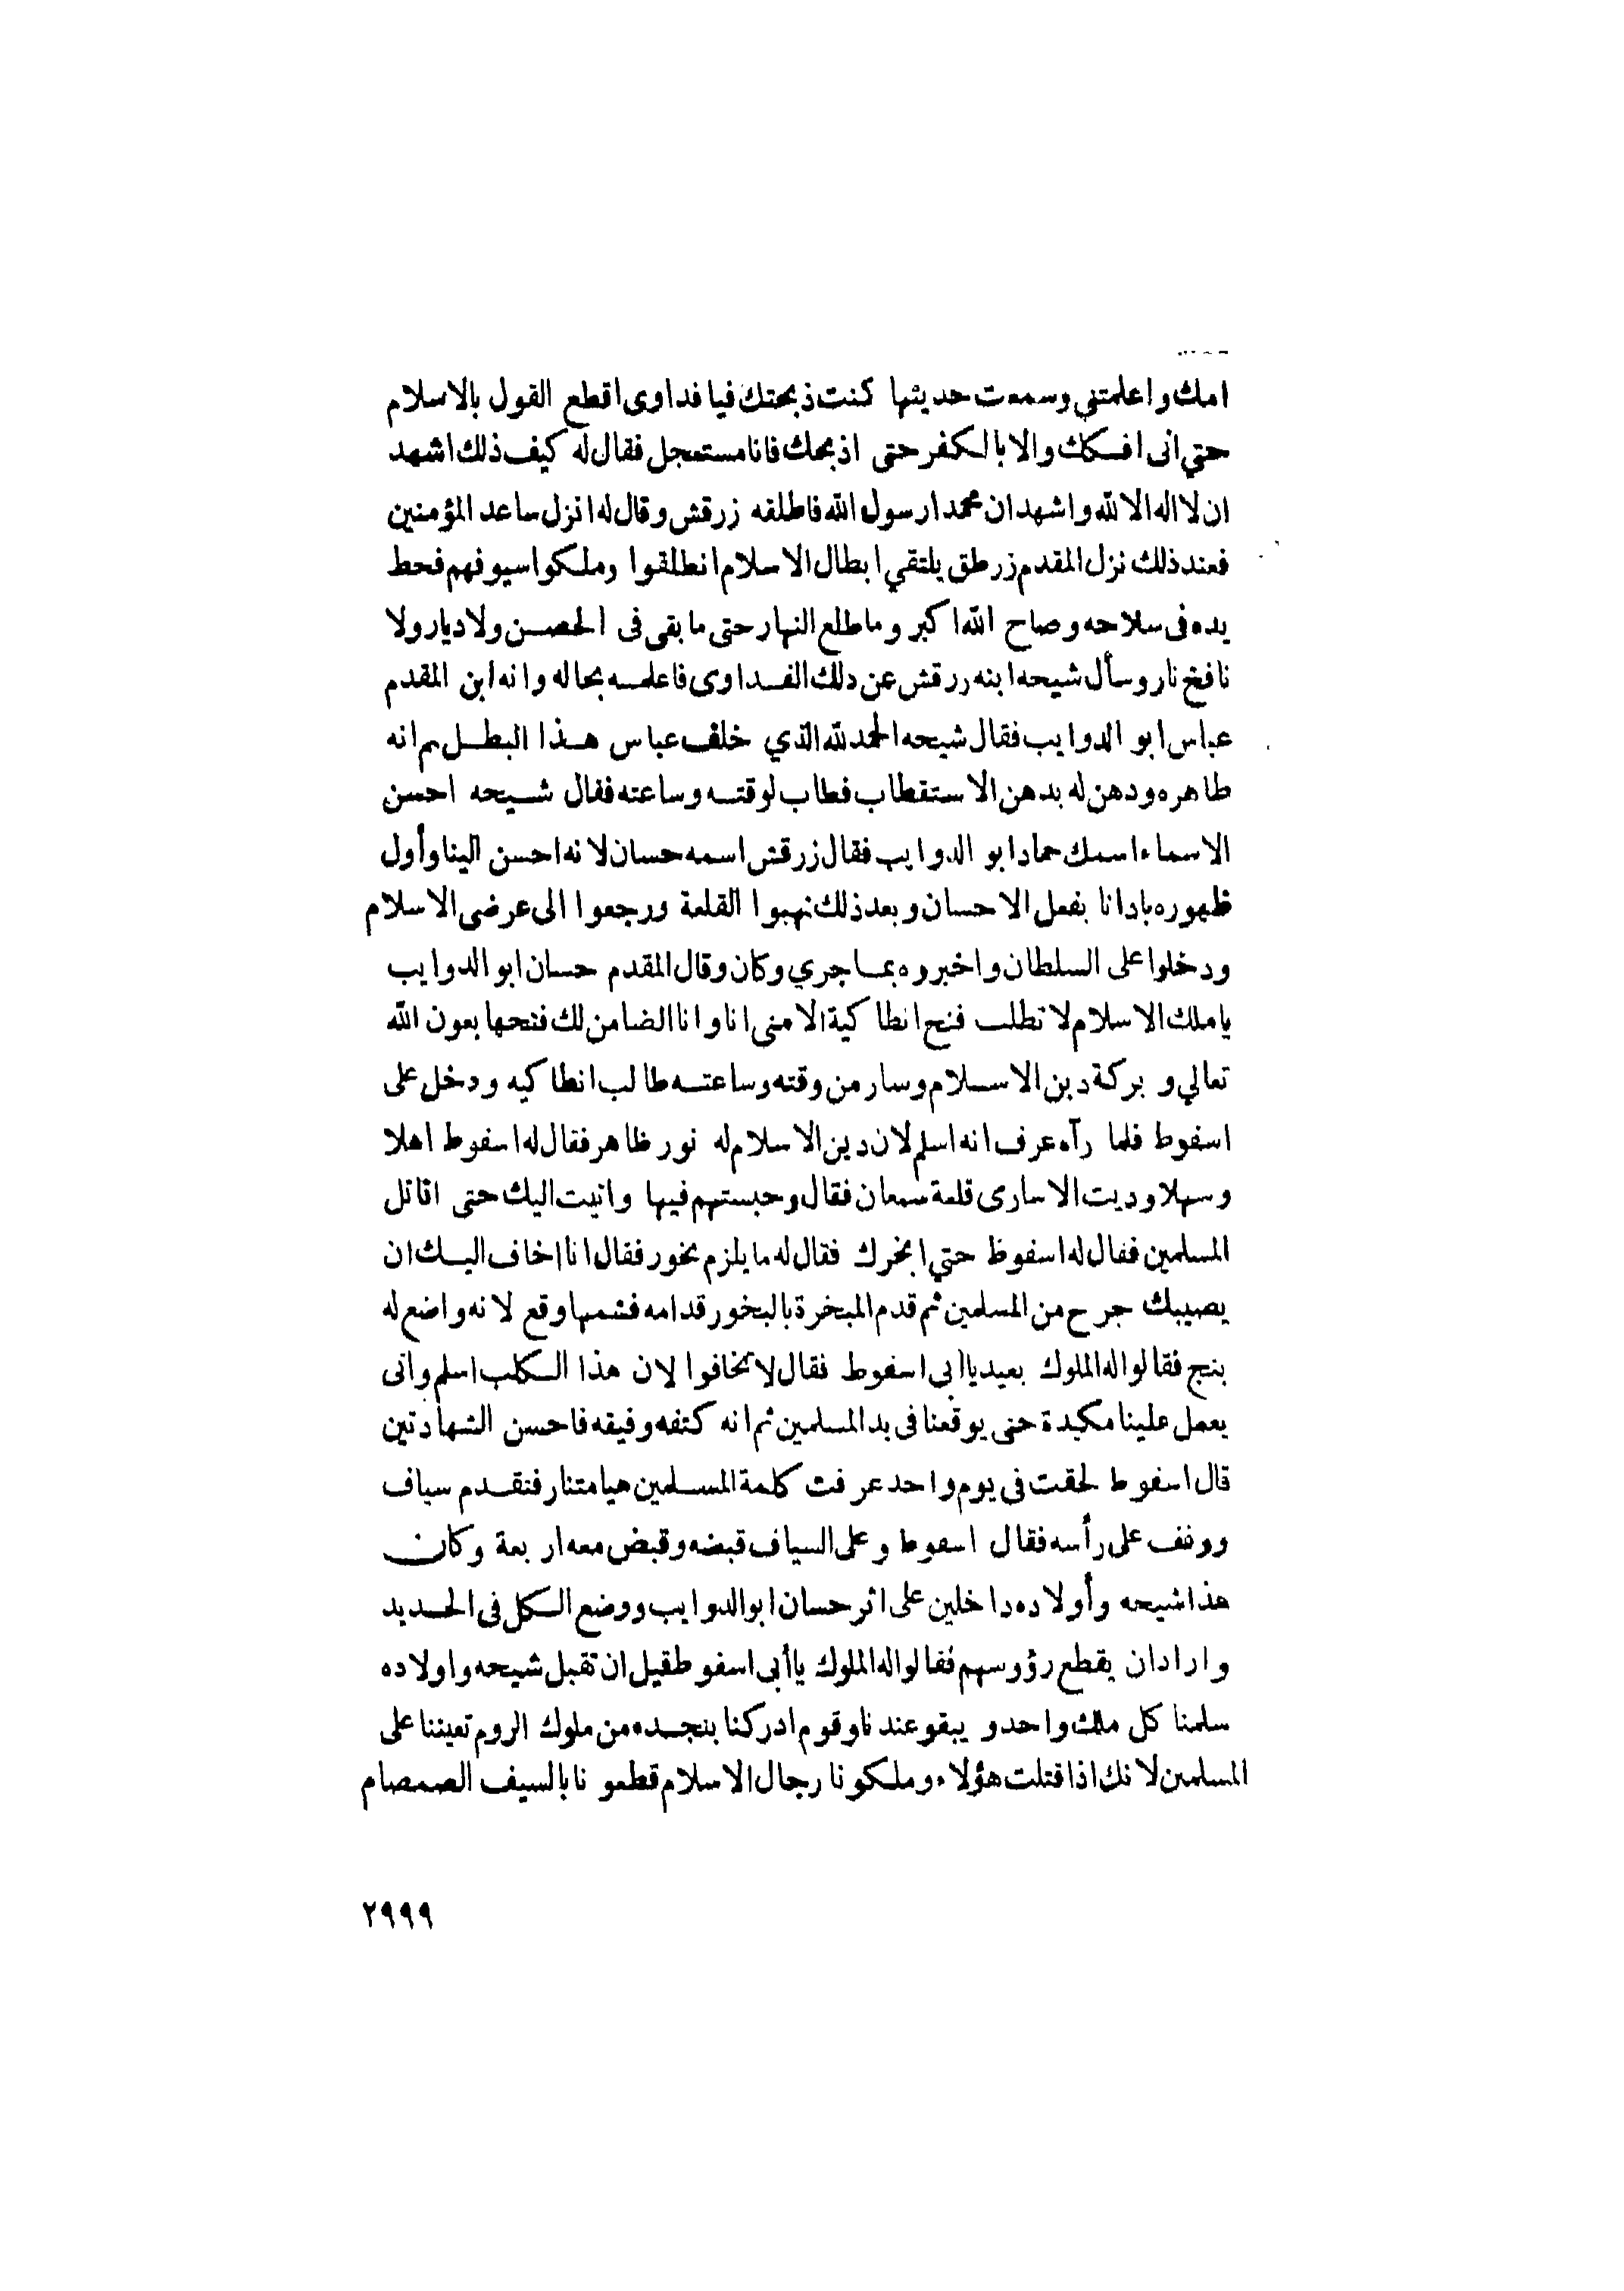 امك واعلمتني وسمعت حديثها كنت ذبحتك فيا فداوى اقطع القول بالاسلام
حتي انى افكك والا بالكفر حتى اذبحك فانا مستعجل فقال له كيف ذلك اشهد
ان لا اله الا لله واشهد ان محمدا رسول الله فاطلقه زرقش وقال له انزل ساعد المؤمنين
فعند ذلك نزل المقدم زرطق يلتقي ابطال الاسلام انطلقوا وملكوا سيوفهم فحط
يده فى سلاحه وصاح الله اكبر وما طلع النهار حتى ما بقى فى الحصن ولا ديار ولا
نافخ نار وسأل شيحه ابنه زرقش عن ذلك الفداوى فاعلمه بحاله وانه ابن المقدم
عباس ابو الدوايب فقال شيحه الحمد لله الذي خلف عباس هذا البطل ثم انه
طاهره ودهن له بدهن الاستقطاب فطاب لوقته وساعته فقال شيحه احسن
الاسماء اسمك حماد ابو الدوايب فقال زرقش اسمه حسان لانه احسن الينا وأول
ظهوره بادانا بفعل الاحسان وبعد ذلك نهبوا القلعة ورجعوا الى عرضى الاسلام
ودخلوا على السلطان واخبروه بما جري وكان وقال المقدم حسان ابو الدوايب
يا ملك الاسلام لا تطلب فتح انطاكية الا منى انا وانا الضامن لك فتحها بعون الله
تعالي و بركة دين الاسلام وسار من وقته وساعته طالب انطاكيه ودخل على
اسفوط فلما رآه عرف انه اسلم لان دين الاسلام له نور ظاهر فقال له اسفوط اهلا
وسهلا وديت الاسارى قلعة سمعان فقال وحبستهم فيها واتيت اليك حتى اقاتل
المسلمين فقال له اسفوظ حتي ابخرك فقال له ما يلزم بخور فقال انا اخاف اليك ان
يصيبك جرح من المسلمين ثم قدم المبخرة بالبخور قدامه فشمها وقع لانه واضع له
بنج فقالوا له الملوك بعيد يا ابى اسفوط فقال لا تخافوا لان هذا الكلب اسلم واتى
يعمل علينا مكيدة حتى يوقعنا فى يد المسلمين ثم انه كتفه وفيقه فاحسن الشهادتين
قال اسفوط لحقت فى يوم واحد عرفت كلمة المسلمين هيا متنار فتقدم سياف
ووقف على رأسه فقال اسفوط وعلى السياف قبضه وقبض معه اربعة وكان
هذا شيحه وأولاده داخلين على اثر حسان ابو الدوايب ووضع الكل فى الحديد
واراد ان يقطع رؤوسهم فقالوا له الملوك يا أبى اسفوط قيل ان تقبل شيحه واولاده
سلمنا كل ملك واحد و يبقو عندنا وقوم ادركنا بنجده من ملوك الروم تعيننا على
المسلمين لانك اذا قتلت هؤلاء وملكونا رجال الاسلام قطعونا بالسيف الصمصام
٢٩٩٩